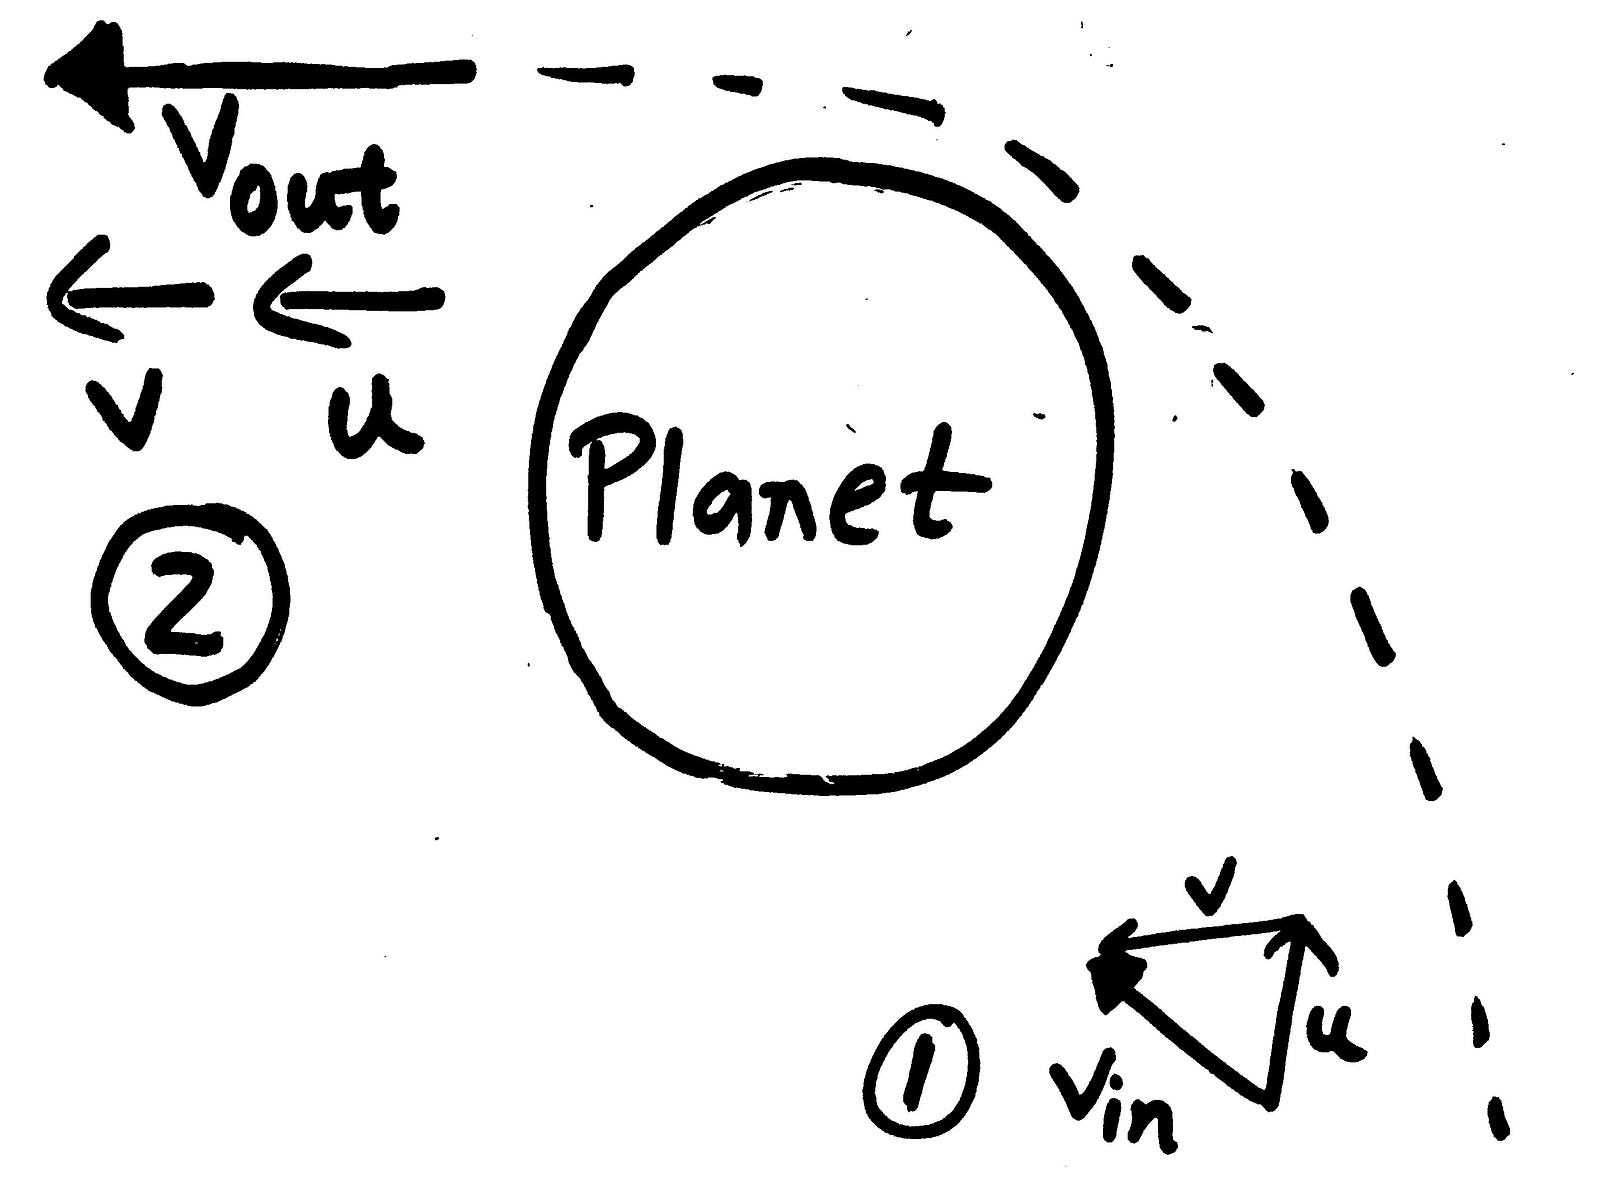 Vout
v u
2
Planet
v
u
1
Vin